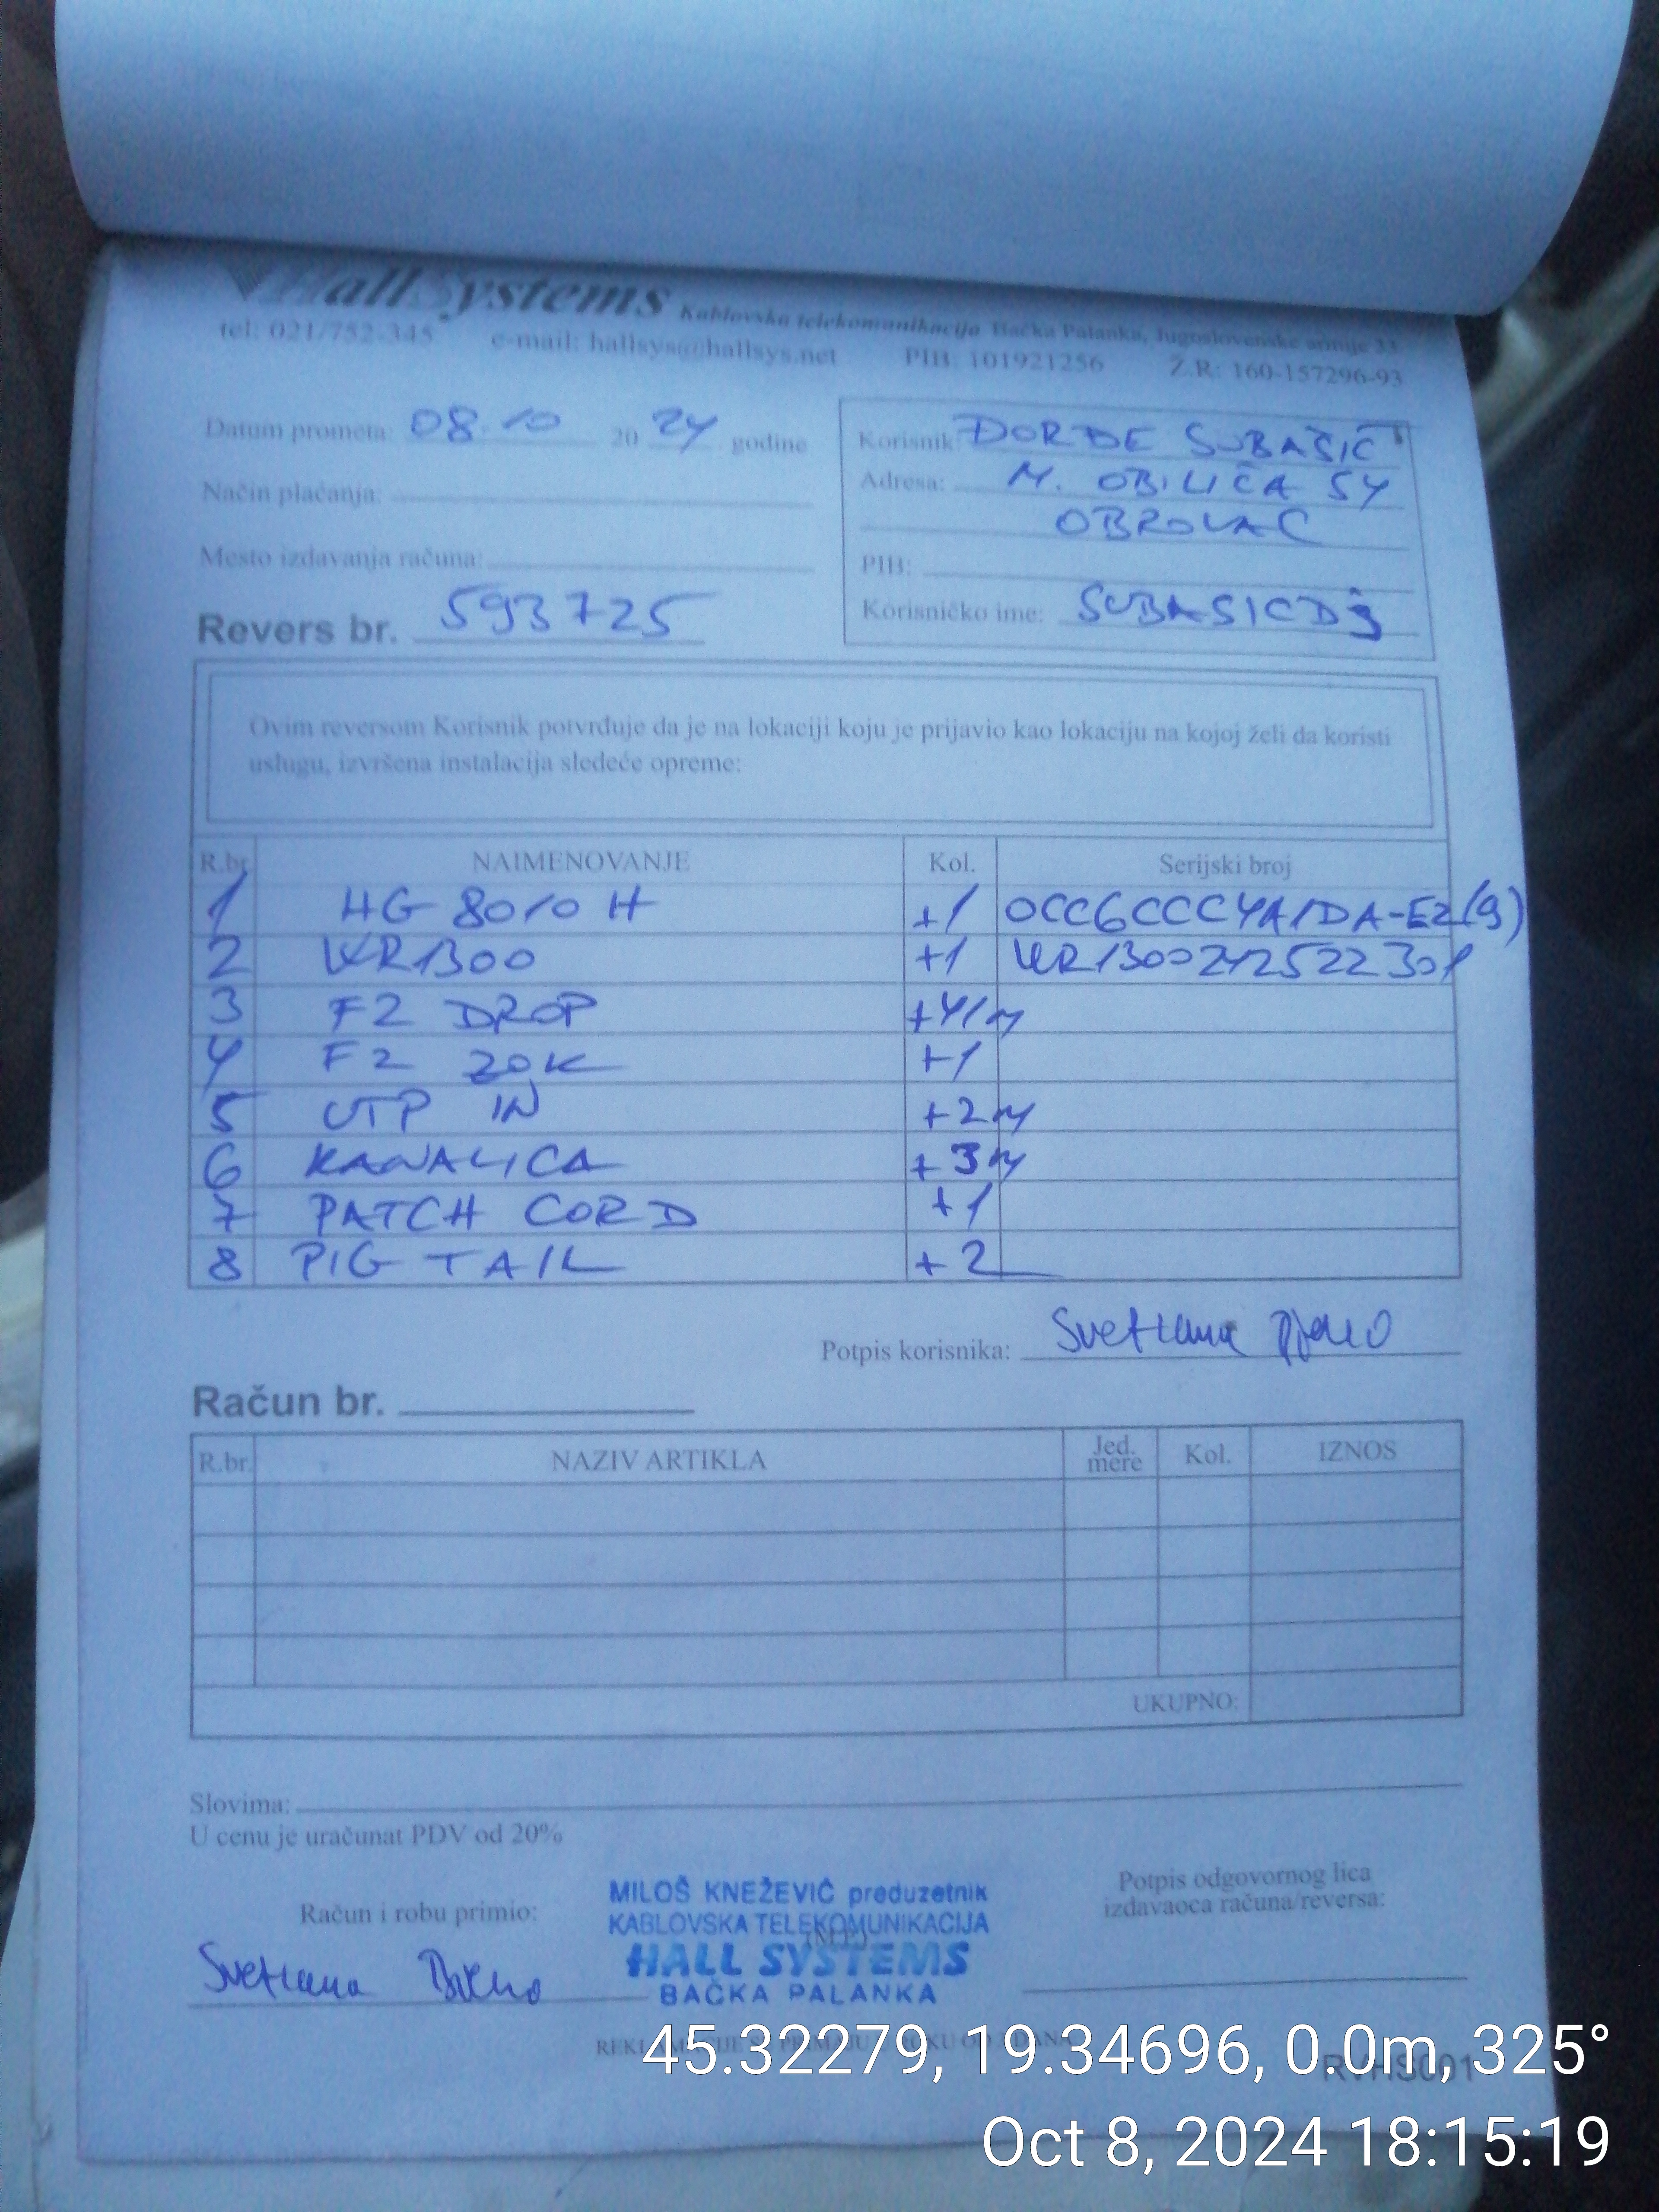 Hall Systems Kablovska telekomunikacija Bačka Palanka, Jugoslovenske armije 33
tel: 021/752-345 e-mail: hallsys@hallsys.net PIB: 101921256 Ž.R: 160-157296-93
Datum prometa: 08.10 20 24 godine
Način plaćanja:
Mesto izdavanja računa:
Revers br. 593725
Korisnik: ĐORĐE SUBAŠIĆ
Adresa: M. OBILIĆA 54
OBROVAC
PIB:
Korisničko ime: SUBASICDJ
Ovim reversom Korisnik potvrđuje da je na lokaciji koju je prijavio kao lokaciju na kojoj želi da koristi
uslugu, izvršena instalacija sledeće opreme:
R.br. NAIMENOVANJE Kol. Serijski broj
1 HG 8010 H +1
2 WR1300 +1 WR1300242522301
3 F2 DROP +41m
4 F2 ZOK +1
5 UTP IN +2m
6 KANALICA +3m
7 PATCH CORD +1
8 PIG TAIL +2
Potpis korisnika: Svetlana
Račun br.
R.br. NAZIV ARTIKLA Jed. mere Kol. IZNOS
UKUPNO:
Slovima:
U cenu je uračunat PDV od 20%
Račun i robu primio:
Svetlana
MILOŠ KNEŽEVIĆ preduzetnik
KABLOVSKA TELEKOMUNIKACIJA
(M.P.)
HALL SYSTEMS
BAČKA PALANKA
Potpis odgovornog lica
izdavaoca računa/reversa:
45.32279, 19.34696, 0.0m, 325°
RVHS001
Oct 8, 2024 18:15:19